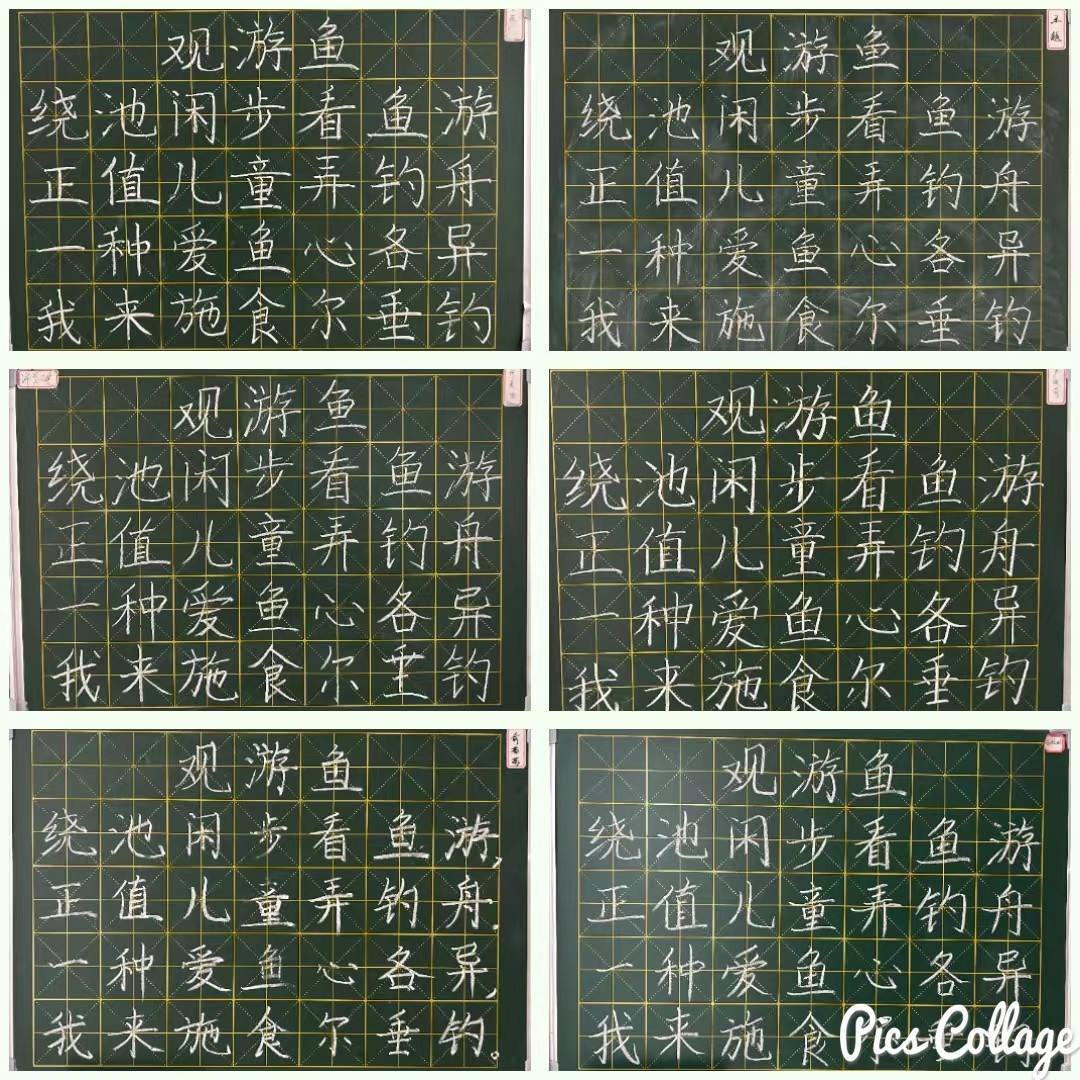 观游鱼
绕池闲步看鱼游
正值儿童弄钓舟
一种爱鱼心各异
我来施食尔垂钓
观游鱼
绕池闲步看鱼游
正值儿童弄钓舟
一种爱鱼心各异
我来施食尔垂钓
观游鱼
绕池闲步看鱼游
正值儿童弄钓舟
一种爱鱼心各异
我来施食尔垂钓
观游鱼
绕池闲步看鱼游
正值儿童弄钓舟
一种爱鱼心各异
我来施食尔垂钓
观游鱼
绕池闲步看鱼游,
正值儿童弄钓舟.
一种爱鱼心各异,
我来施食尔垂钓。
观游鱼
绕池闲步看鱼游
正值儿童弄钓舟
一种爱鱼心各异
我来施食
Pics Collage